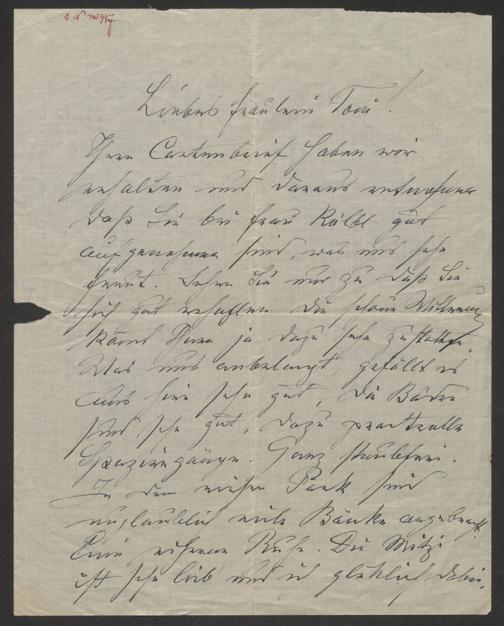 Liebes Fräulein Toni!
Ihren Cartenbrief haben wir
erhalten und daraus entnommen
daß Sie bei Frau Kölbl gut
aufgenommen sind, was uns sehr
freut. Sehen Sie nur zu daß Sie
sich gut erhollen die schöne Witterung
kömt Ihnen ja dazu sehr zustatten.
Was uns anbelangt, gefällt es
uns hier sehr gut, die Bäder
sind sehr gut, dazu prachtvolle
Spaziergänge. Ganz staubfrei.
In dem Park sind
unglaublich viele Bänke angebracht
Eine Ruhe. Die Mitzi
ist sehr lieb und ich glüklich dabei.